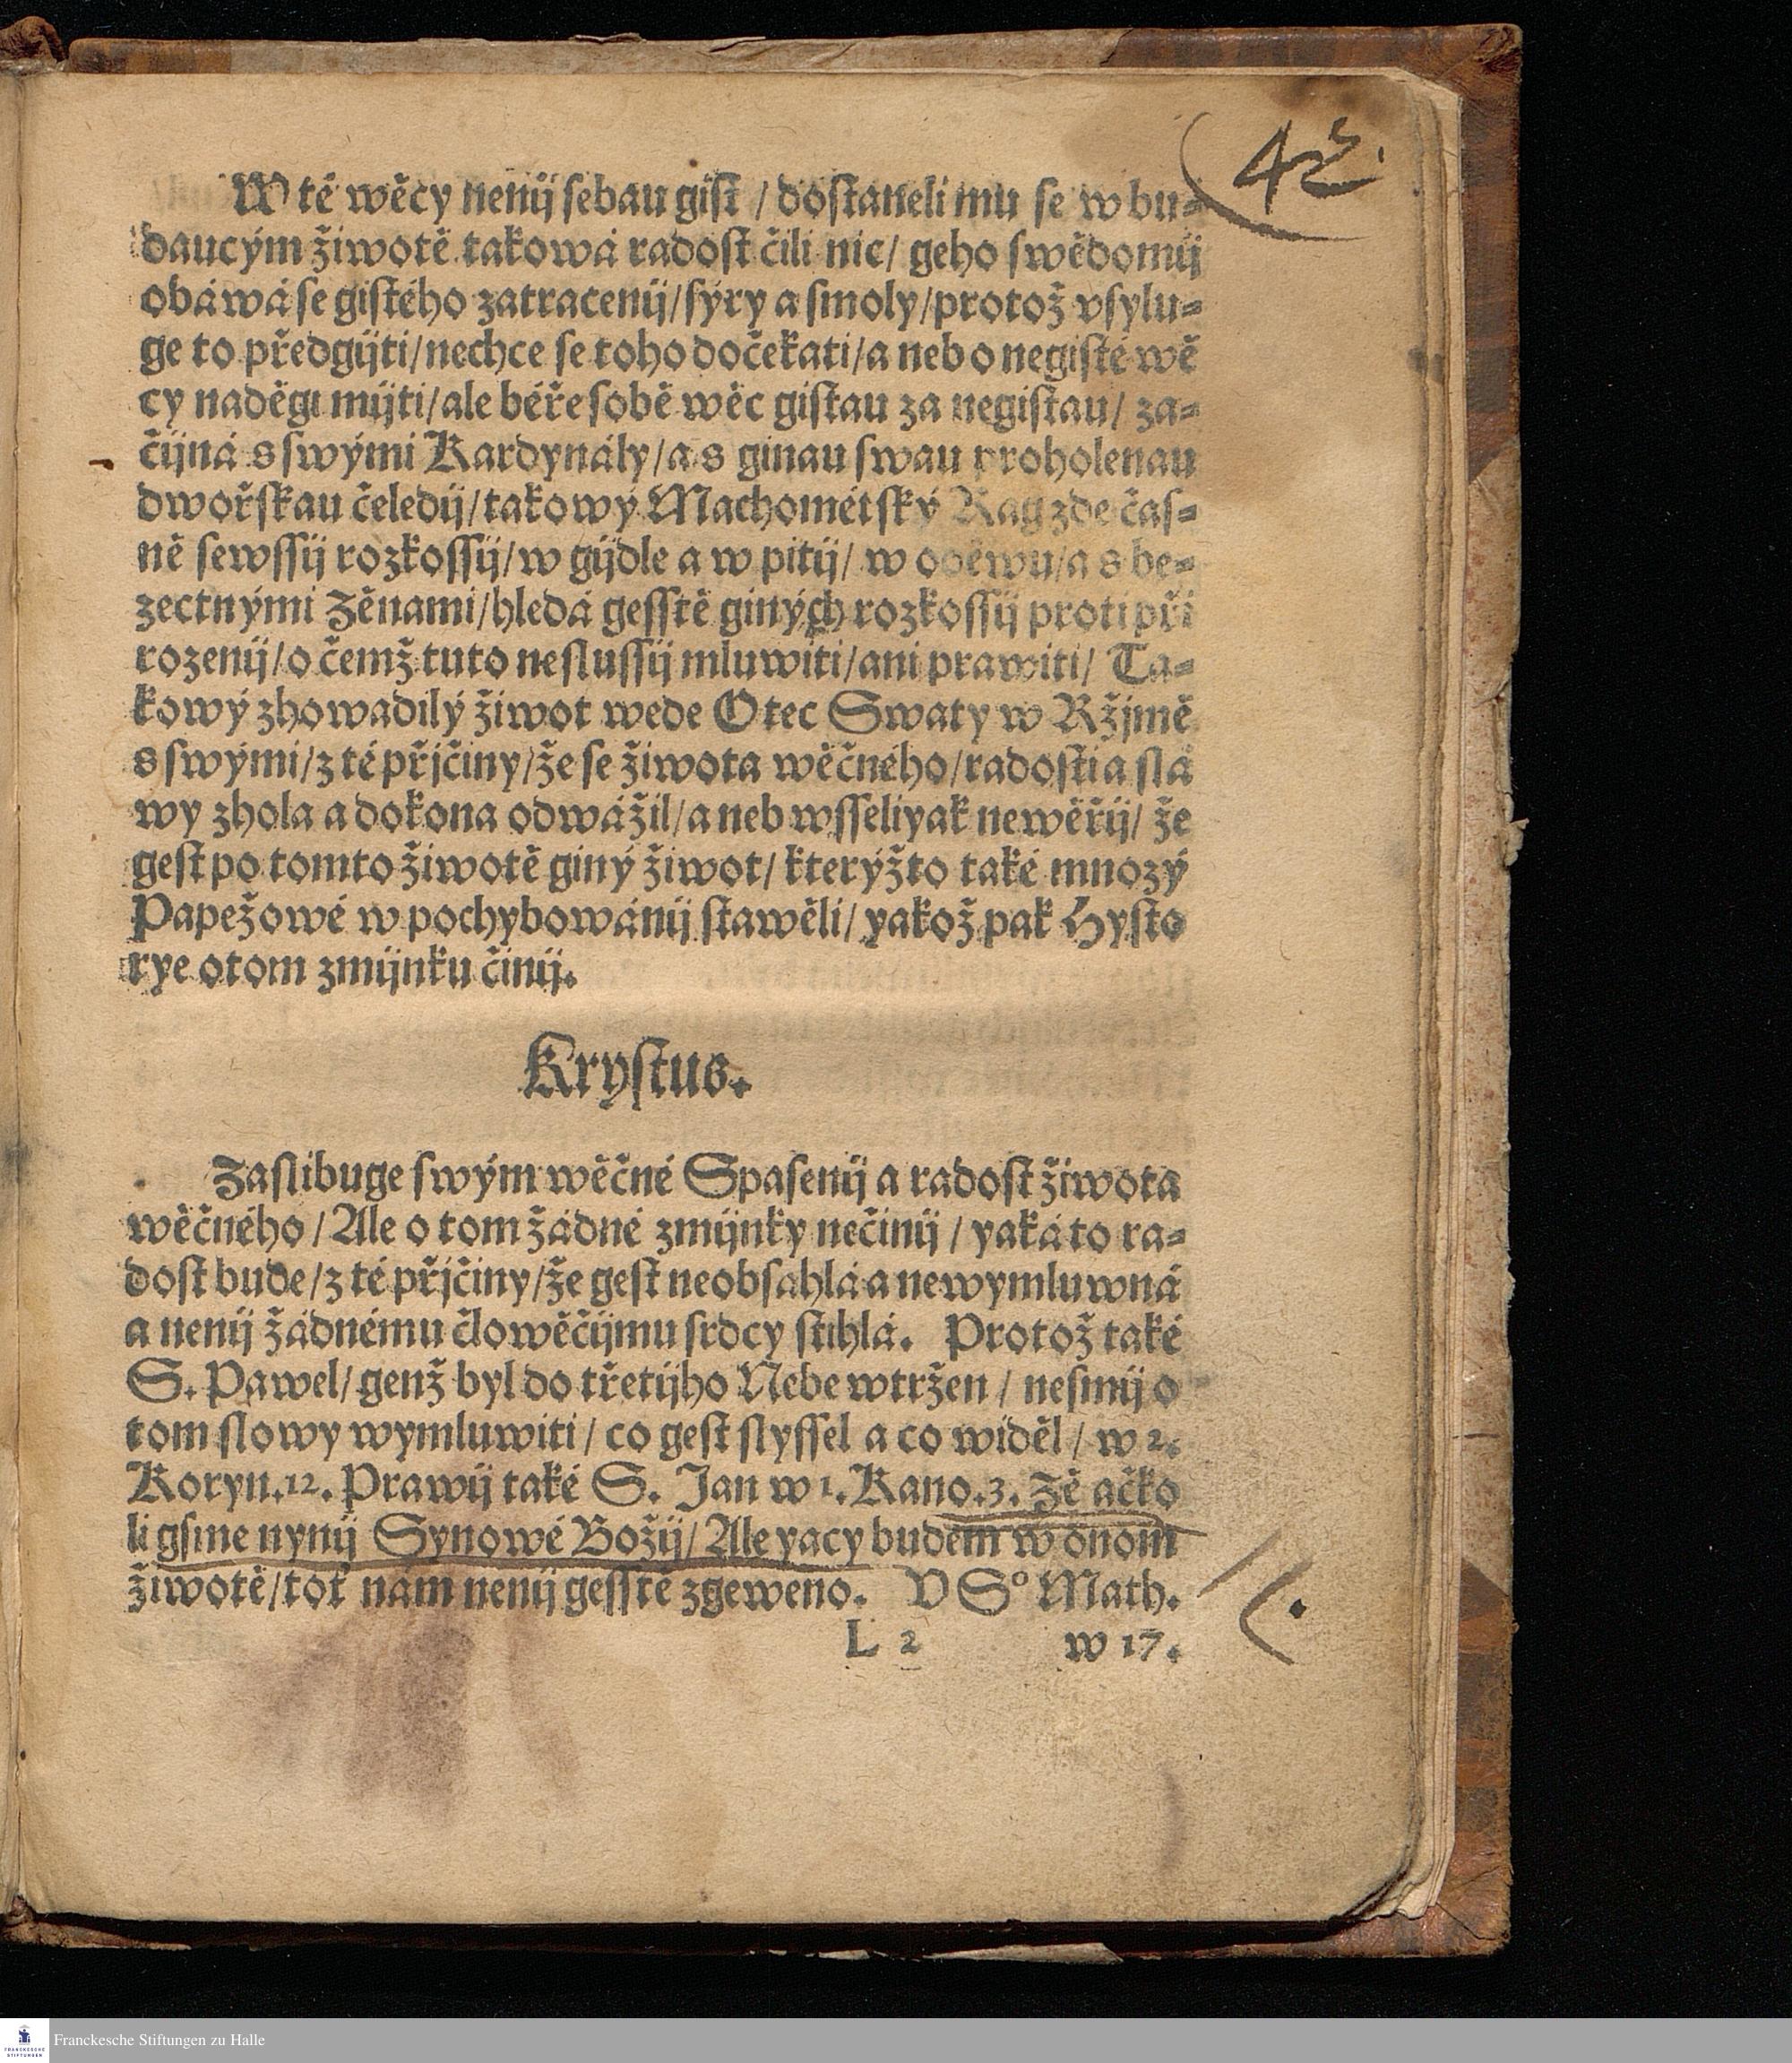 42.
W té wěcy nenij sebau gist / dostaneli mu se w bu=
daucým žiwotě takowá radost čili nic / geho swědomij
obáwá se gistého zatracenij / syry a smoly / protož vsylu=
ge to předgijti / nechce se toho dočekati / a neb o negisté wě
cy naděgi mijti / ale béře sobě wěc gistau za negistau / za=
čijná s swými Kardynály / a s ginau swau proholenau
dwořskau čeledij / takowý Machométský Rag zde čas=
ně sewssij rozkossij / w gijdle a w pitij / w oděwu / a s be=
zectnými Zěnami / hledá gesstě giných rozkossij proti při
rozenij / o čemž tuto neslussij mluwiti / ani prawiti / Ta=
kowý zhowadilý žiwot wede Otec Swaty w Ržjmě
s swými / z té přjčiny / že se žiwota wěčného / radosti a slá
wy zhola a dokona odwážil / a neb wsseliyak newěřij / že
gest po tomto žiwotě giný žiwot / kterýžto také mnozý
Papežowé w pochybowánij stawěli / yakož pak Hysto
rye o tom zmijnku činij.
Krystus.
Zaslibuge swým wěčné Spasenij a radost žiwota
wěčného / Ale o tom žádné zmijnky nečinij / yaká to ra=
dost bude / z té přjčiny / že gest neobsáhlá a newymluwná
a nenij žádnému člowěčijmu srdcy stihlá. Protož také
S. Pawel / genž byl do třetijho Nebe wtržen / nesmij o
tom slowy wymluwiti / co gest slyssel a co widěl / w 2.
Koryn. 12. Prawij také S. Jan w 1. Kano. 3. Zě ačko
li gsme nynij Synowé Božij / Ale yacy budem w onom
žiwotě / toť nám nenij gesstě zgeweno. V Sº Math.
L 2 w 17.
Franckesche Stiftungen zu Halle
FRANCKESCHE
STIFTUNGEN